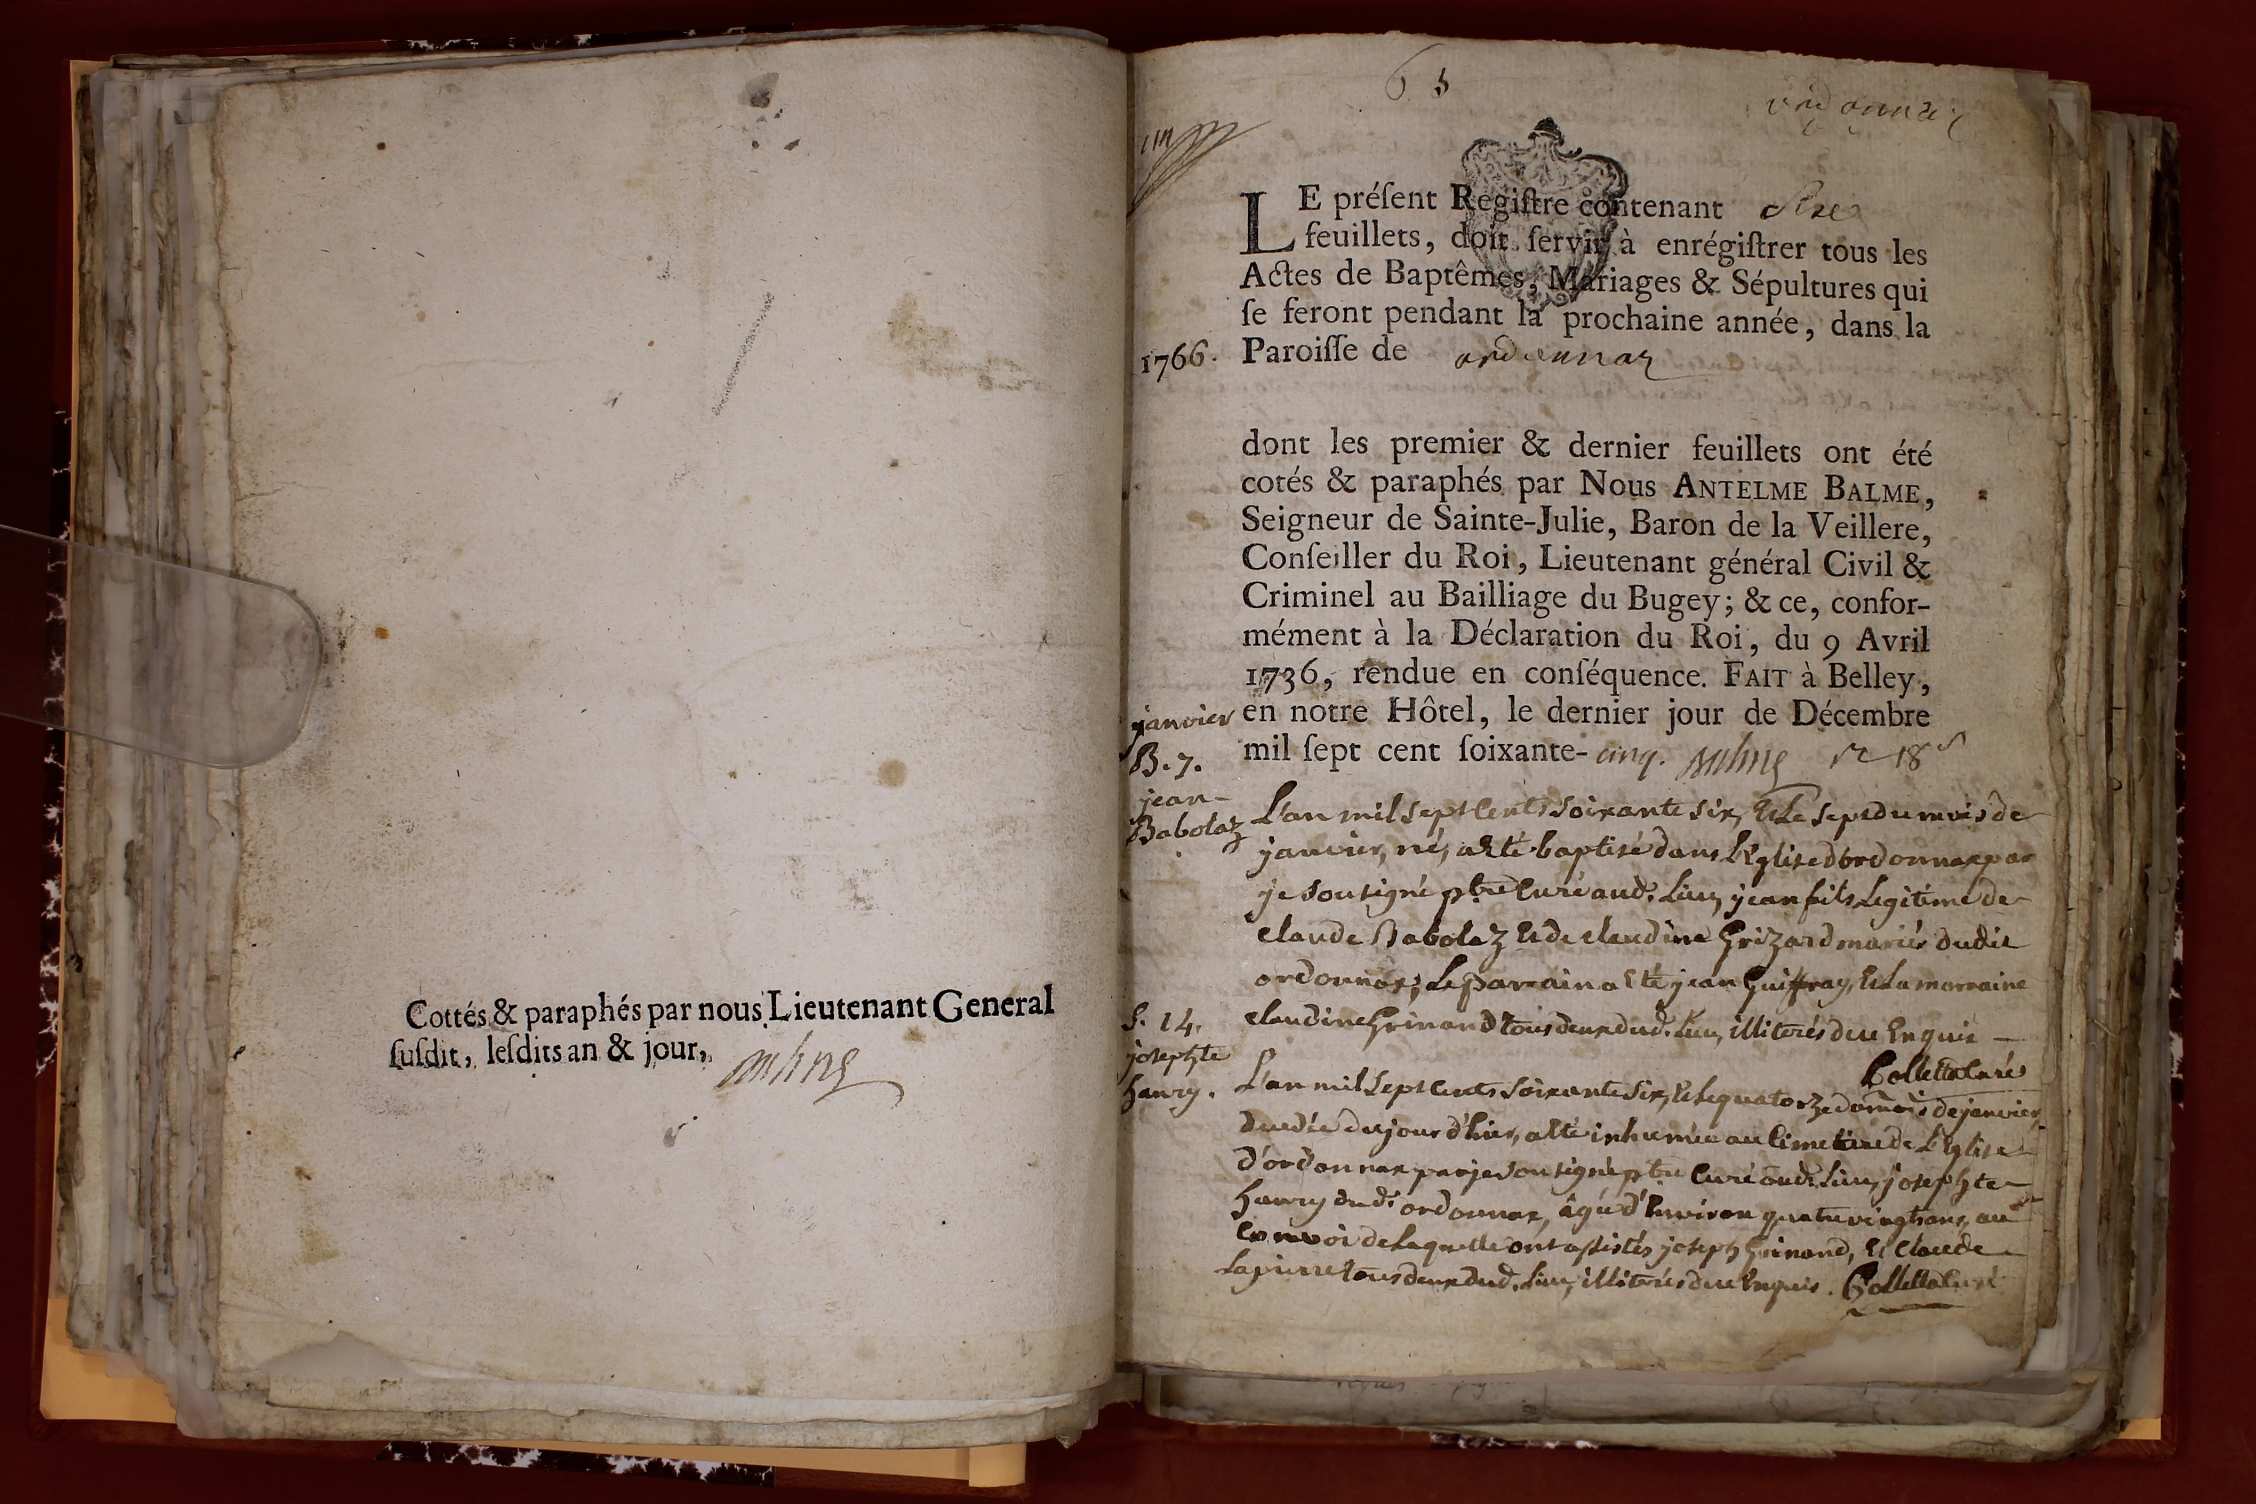 Cottés & paraphés par nous Lieutenant General
ſuſdit, leſdits an & jour,
6 5
ordonnaz
LE préſent Regiſtre contenant
feuillets, doit ſervir à enrégiſtrer tous les
Actes de Baptêmes, Mariages & Sépultures qui
ſe feront pendant la prochaine année, dans la
1766. Paroiſſe de ordonnaz
dont les premier & dernier feuillets ont été
cotés & paraphés par Nous ANTELME BALME,
Seigneur de Sainte-Julie, Baron de la Veillere,
Conſeiller du Roi, Lieutenant général Civil &
Criminel au Bailliage du Bugey; & ce, confor-
mément à la Déclaration du Roi, du 9 Avril
1736, rendue en conſéquence. FAIT à Belley,
en notre Hôtel, le dernier jour de Décembre
mil ſept cent ſoixante- cinq. Balme
janvier
B. 7.
jean
Babolaz
L'an mil sept cents soixante six, et le sept du mois de
janvier, né, a eté baptisé dans l'Eglise d'ordonnax par
je sousigné ptre curé aud. lieu, jean fils legitime de
claude Babolaz et de claudine Grizard mariés dudit
ordonnax; le parrain a eté jean Guiffray, et la marraine
claudine Grinand tous deux dud. lieu, illiterés de ce enquis
Collet curé
S. 14.
josephte
hanry.
L'an mil sept cents soixante six, et le quatorze du mois de janvier,
decedée du jour d'hier, a eté inhumée au cimetiere de l'Eglise
d'ordonnax par je sousigné ptre curé aud. lieu, josephte
hanry dud. ordonnax, âgée d'environ quatre vingt ans, au
convoi de laquelle ont assistés joseph Grinand, et claude
Lapierre tous deux dud. lieu, illiterés de ce enquis. Collet curé